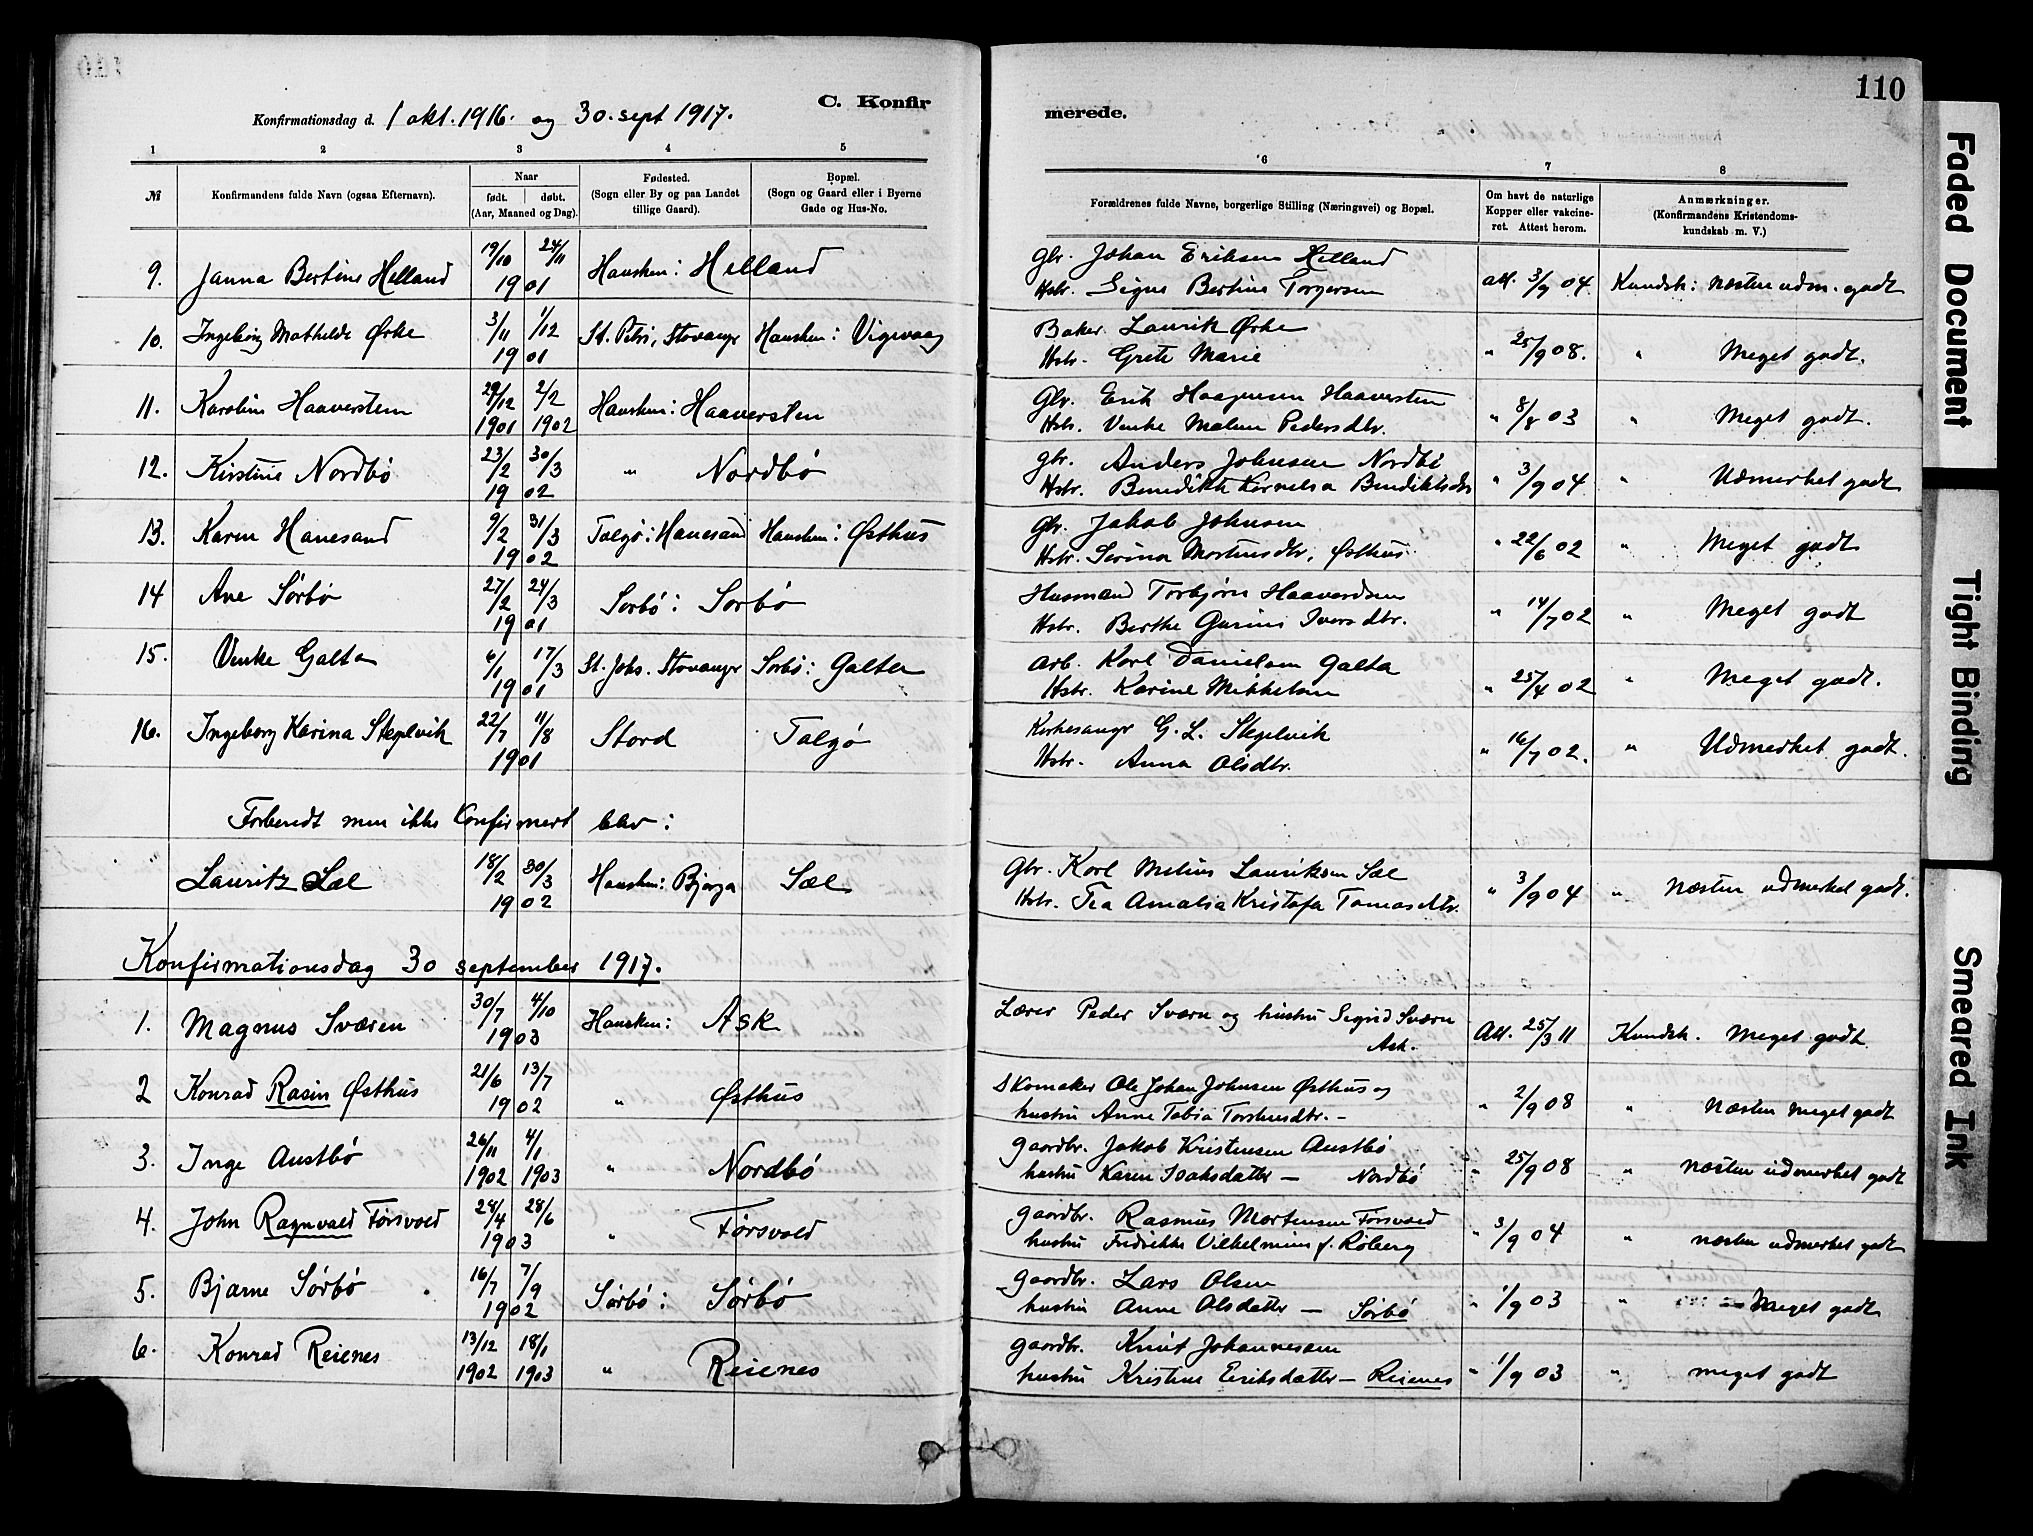 110
C. Konfir
merede.
Konfirmationsdag d. 1 okt. 1916. og 30. sept 1917.
1 2 3 4 5 6 7 8
№
Konfirmandens fulde Navn (ogsaa Efternavn).
Naar
født. døbt.
(Aar, Maaned og Dag).
Fødested.
(Sogn eller By og paa Landet
tillige Gaard).
Bopæl.
(Sogn og Gaard eller i Byerne
Gade og Hus-No.
Forældrenes fulde Navne, borgerlige Stilling (Næringsvei) og Bopæl.
Om havt de naturlige
Kopper eller vakcine-
ret. Attest herom.
Anmærkninger.
(Konfirmandens Kristendoms-
kundskab m. V.)
9. Janna Bertine Helland 19/10 24/11 1901 Hausken: Helland
Gbr. Johan Eriksen Helland
Hstr. Signe Bertine Torgersen att. 3/9 04. Kundsk: næsten udm. godt
10. Ingeborg Mathilde Ørke 3/11 1/12 1901 St. Petri, Stavanger Hausken: Vigevaag
Baker. Laurik Ørke
Hstr. Grete Marie " 25/9 08. " Meget godt.
11. Karoline Haaverstein 29/12 1901 2/2 1902 Hausken: Haaverstein
Gbr. Erik Haagensen Haaverstein
Hstr. Venke Malene Pedersdtr. " 8/8 03 " Meget godt.
12. Kirstine Nordbø 23/2 30/3 1902 " Nordbø
Gbr. Anders Johnsen Nordbø
Hstr. Benedikte Kornelia Benediktsdtr " 3/9 04. " Udmerket godt
13. Karen Hanesand 9/2 31/3 1902 Talgø: Hanesand Hausken: Østhus
Gbr. Jakob Johnsen
Hstr. Serina Mortensdtr, Østhus. " 22/6 02 " Meget godt
14 Ane Sørbø 27/2 24/3 1901 Sørbø: Sørbø
Husmand Torbjørn Haavardsen
Hstr. Berthe Gurine Iversdtr. " 14/7 02 " Meget godt
15. Venke Galta 6/1 17/3 1901 St. Johs. Stavanger Sørbø: Galta
Arb. Karl Danielsen Galta
Hstr. Karine Mikkelsen " 25/4 02 " Meget godt.
16. Ingeborg Karina Stegelvik 22/7 11/8 1901 Stord Talgø
Kirkesanger G. L. Stegelvik
Hstr. Anna Olsdtr. " 16/7 02. " Udmerket godt.
Forberedt men ikke Konfirmert blev:
Lauritz Sæl 18/2 30/3 1902 Hausken: Bjerga Sæl
Gbr. Karl Melius Lauriksen Sæl
Hstr. Tea Amalia Kristofa Tomasdtr. " 3/9 04 " næsten udmerket godt.
Konfirmationsdag 30 september 1917.
1. Magnus Sværen 30/7 4/10 1903 Hausken: Ask
Lærer Peder Sværn og hustru Sigrid Sværn
Ask. Att. 25/3 11 Kundsk. Meget godt
2 Konrad Rasin Østhus 21/6 13/7 1902 " Østhus
Skomaker Ole Johan Johnsen Østhus og
hustru Anne Tobia Torsteinsdtr. - " 2/9 08 " Næsten meget godt
3. Inge Austbø 26/11 1902 4/1 1903 " Nordbø
gaardbr. Jakob Kristensen Austbø
hustru Karen Isaksdatter — Nordbø " 25/9 08 " næsten udmerket godt
4. John Ragnvald Førsvold 28/4 28/6 1903 " Førsvold
gaardbr. Rasmus Mortensen Førsvold
hustru Fredrikke Vilhelmine f. Røberg " 3/9 04 " næsten udmerket godt
5. Bjarne Sørbø 16/7 7/9 1902 Sørbø: Sørbø
gaardbr. Lars Olsen
hustru Anne Olsdatter — Sørbø " 1/9 03 " Meget godt
6. Konrad Reienes 13/12 1902 18/1 1903 " Reienes
gaardbr. Knut Johannesen
hustru Kristine Eriksdatter — Reienes " 1/9 03 " meget godt
Faded Document
Tight Binding
Smeared Ink